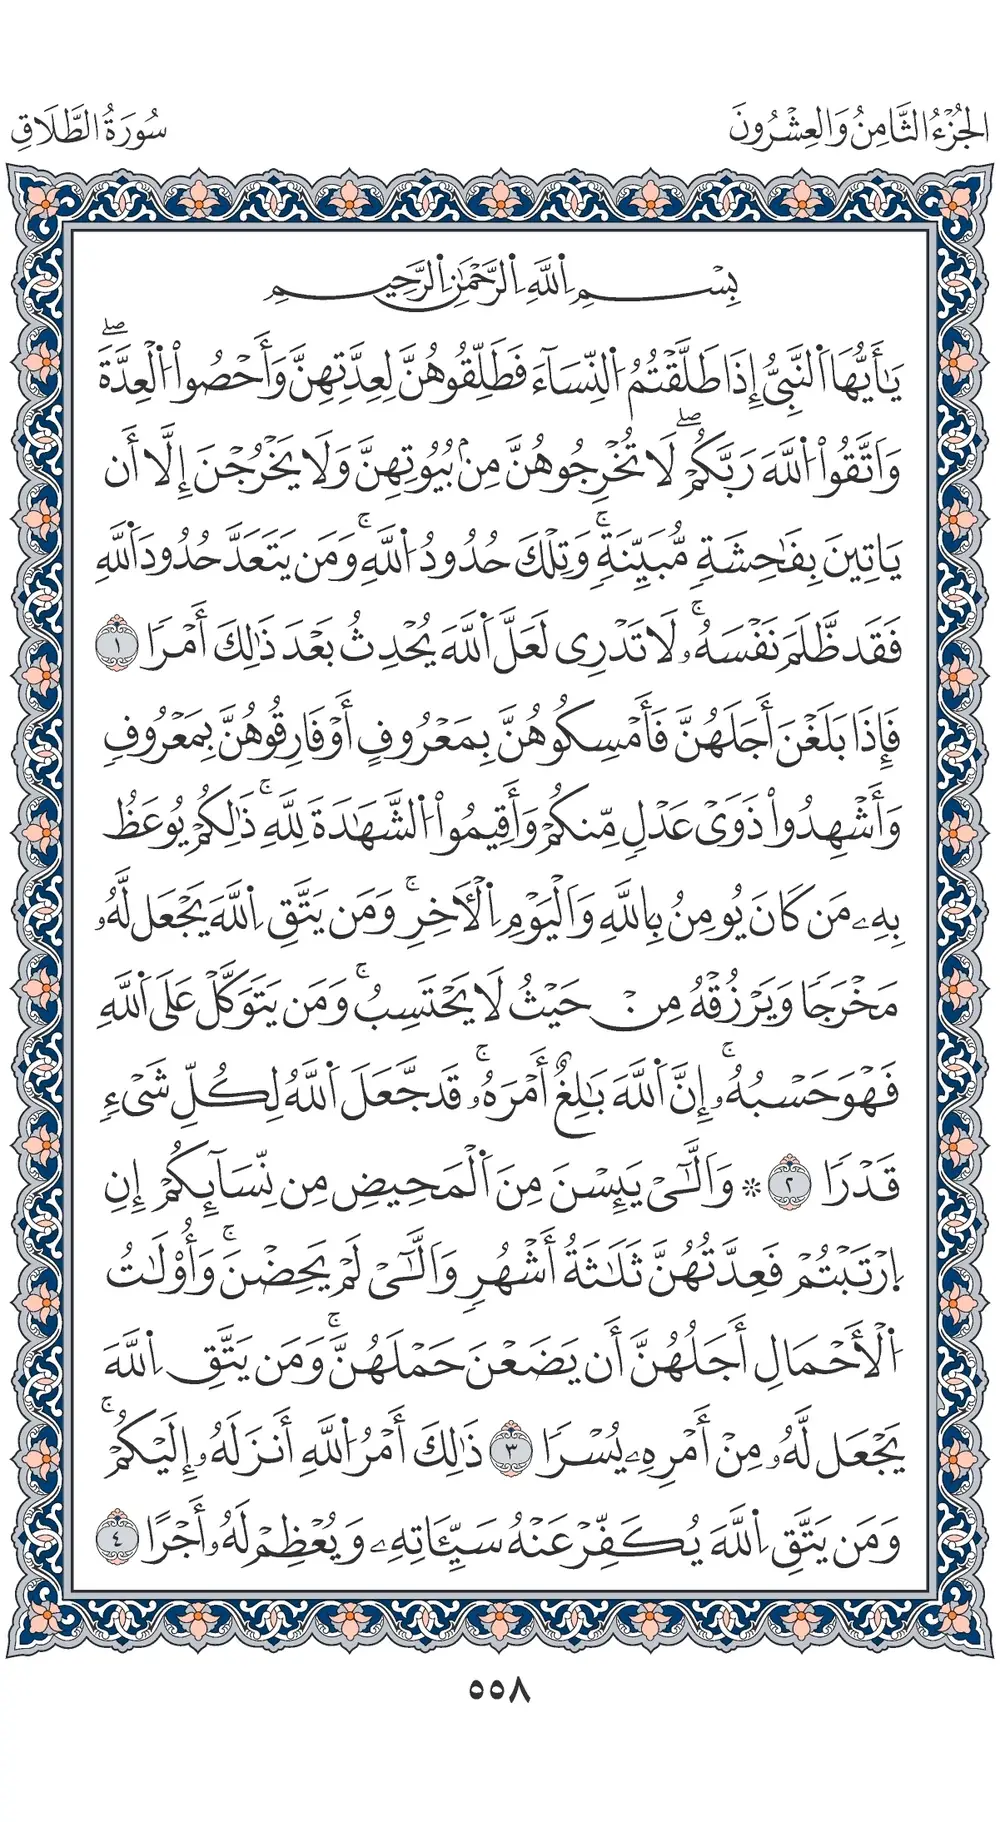 الجُزْءُ الثَّامِنُ وَالعِشْرُونَ
سُورَةُ الطَّلَاقِ
بِسْمِ اِ۬للَّهِ اِ۬لرَّحْمَٰنِ اِ۬لرَّحِيمِ
يَٰأَيُّهَا اَ۬لنَّبِيُّ إِذَا طَلَّقْتُمُ اُ۬لنِّسَآءَ فَطَلِّقُوهُنَّ لِعِدَّتِهِنَّ وَأَحْصُواْ اُ۬لْعِدَّةَۖ
وَاَتَّقُواْ اُ۬للَّهَ رَبَّكُمْۖ لَا تُخْرِجُوهُنَّ مِنۢ بُيُوتِهِنَّ وَلَا يَخْرُجْنَ إِلَّا أَن
يَاتِينَ بِفَٰحِشَةٖ مُّبَيِّنَةٖۚ وَتِلْكَ حُدُودُ اُ۬للَّهِۚ وَمَن يَتَعَدَّ حُدُودَ اَ۬للَّهِ
فَقَد ظَّلَمَ نَفْسَهُۥۚ لَا تَدْرِى لَعَلَّ اَ۬للَّهَ يُحْدِثُ بَعْدَ ذَٰلِكَ أَمْرٗا ١
فَإِذَا بَلَغْنَ أَجَلَهُنَّ فَأَمْسِكُوهُنَّ بِمَعْرُوفٍ أَوْ فَارِقُوهُنَّ بِمَعْرُوفٖ
وَأَشْهِدُواْ ذَوَىْ عَدْلٖ مِّنكُمْ وَأَقِيمُواْ اُ۬لشَّهَٰدَةَ لِلَّهِۚ ذَٰلِكُمْ يُوعَظُ
بِهِۦ مَن كَانَ يُومِنُ بِاللَّهِ وَالْيَوْمِ اِ۬لْأٓخِرِۚ وَمَن يَتَّقِ اِ۬للَّهَ يَجْعَل لَّهُۥ
مَخْرَجٗا وَيَرْزُقْهُ مِنْ حَيْثُ لَا يَحْتَسِبُۚ وَمَن يَتَوَكَّلْ عَلَى اَ۬للَّهِ
فَهْوَ حَسْبُهُۥۚ إِنَّ اَ۬للَّهَ بَٰلِغٌ أَمْرَهُۥۚ قَد جَّعَلَ اَ۬للَّهُ لِكُلِّ شَىْءٖ
قَدْرٗا ٢ ۞ وَالَّٰٓىْ يَئِسْنَ مِنَ اَ۬لْمَحِيضِ مِن نِّسَآئِكُمْ إِنِ
اِ۪رْتَبْتُمْ فَعِدَّتُهُنَّ ثَلَٰثَةُ أَشْهُرٖ وَالَّٰٓىْ لَمْ يَحِضْنَۚ وَأُوْلَٰتُ
اُ۬لْأَحْمَالِ أَجَلُهُنَّ أَن يَضَعْنَ حَمْلَهُنَّۚ وَمَن يَتَّقِ اِ۬للَّهَ
يَجْعَل لَّهُۥ مِنْ أَمْرِهِۦ يُسْرٗا ٣ ذَٰلِكَ أَمْرُ اُ۬للَّهِ أَنزَلَهُۥ إِلَيْكُمْۚ
وَمَن يَتَّقِ اِ۬للَّهَ يُكَفِّرْ عَنْهُ سَيِّـَٔاتِهِۦ وَيُعْظِمْ لَهُۥ أَجْرًا ٤
٥٥٨